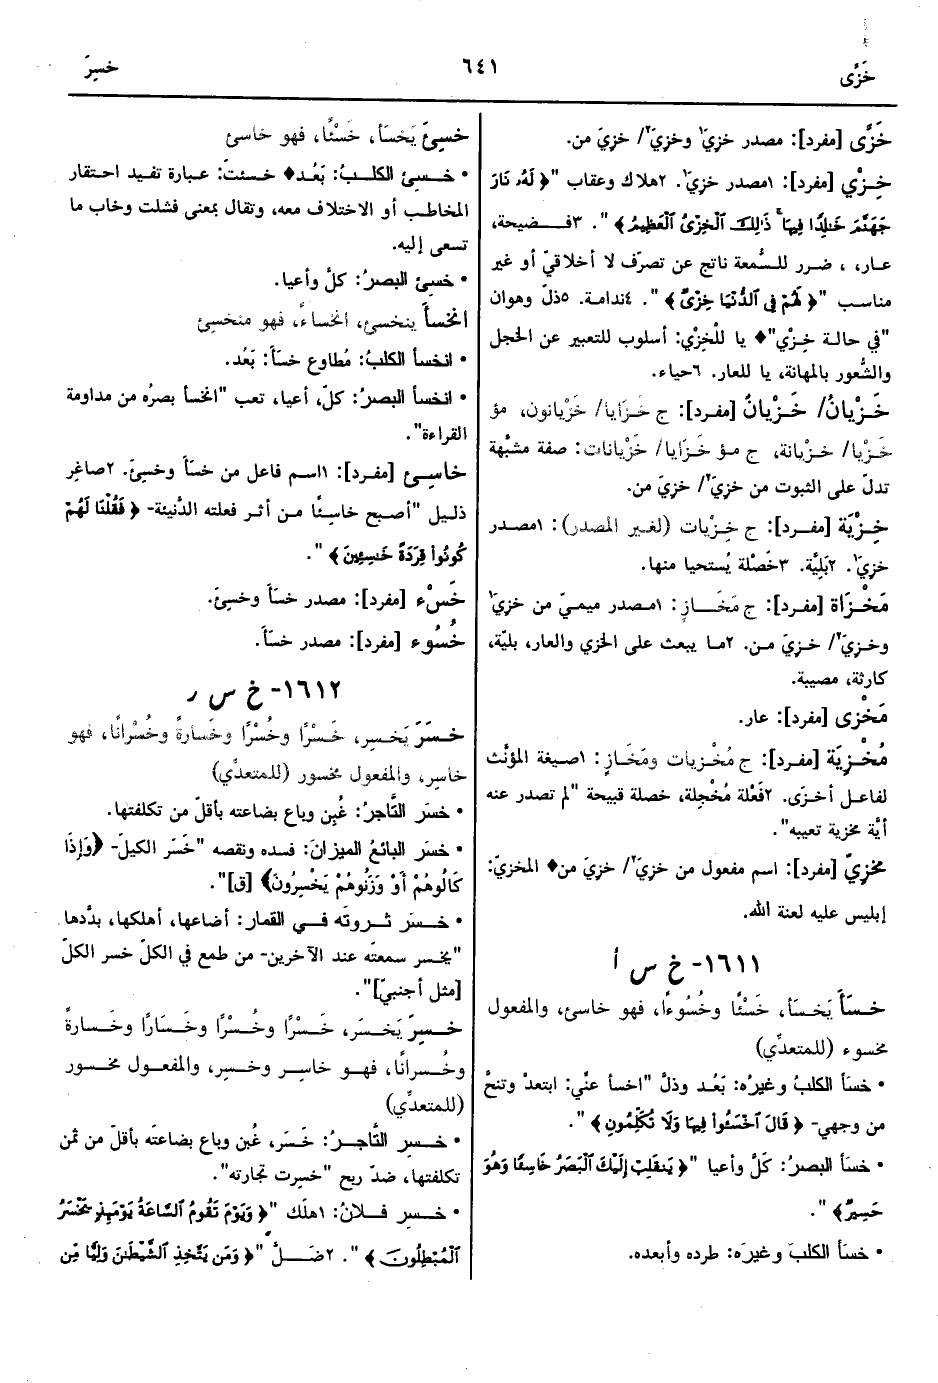 خَزًى
٦٤١
خسِرَ
خَزًى [مفرد]: مصدر خزِيَ١ وخزِيَ٢/ خزِيَ من.
خِـزْي [مفرد]: ١مصدر خزِيَ١. ٢هلاك وعقاب "﴿ لَهُۥ نَارَ
جَهَنَّمَ خَٰلِدًا فِيهَا ۚ ذَٰلِكَ ٱلْخِزْىُ ٱلْعَظِيمُ ﴾". ٣فـضيحة،
عـار، ، ضرر للسُّمعة ناتج عن تصرّف لا أخلاقيّ أو غير
مناسب "﴿ لَهُمْ فِى ٱلدُّنْيَا خِزْىٌ ﴾". ٤ندامة. ٥ذلّ وهوان
"في حالـة خِـزْي"♦ يا للْخِزْي: أسلوب للتعبير عن الخجل
والشُّعور بالمهانة، يا للعار. ٦حياء.
خَـزْيانُ/ خَـزْيانٌ [مفرد]: ج خَـزَايا/ خَزْيانون، مؤ
خَـزْيا/ خـزْيانة، ج مـؤ خَـزَايا/ خَزْيانات: صفة مشبَّهة
تدلّ على الثبوت من خزِيَ٢/ خزِيَ من.
خِـزْيَة [مفـرد]: ج خِـزْيات (لغـير المـصدر): ١مصـدر
خزِيَ١. ٢بَلِيَّة. ٣خَصْلة يُستحيا منها.
مَخْـزَاة [مفـرد]: ج مَخَــازٍ: ١مصـدر ميميّ من خزِيَ١
وخـزِيَ٢/ خـزِيَ مـن. ٢ما يبعث على الخزي والعار، بليّة،
كارثة، مصيبة.
مَخْزًى [مفرد]: عار.
مُخْـزِيَة [مفرد]: ج مُخْـزيات ومَخَـازٍ: ١صيغة المؤنَّث
لفاعل أخـزَى. ٢فَعْلة مُخْجِلة، خصلة قبيحة "لم تصدر عنه
أيَّة مخزية تعيبه".
مَخزِيّ [مفرد]: اسم مفعول من خزِيَ٢/ خزِيَ من♦ المخزيّ:
إبليس عليه لعنة الله.
١٦١١- خ س أ
خـسَأَ يَخسَأ، خَسْئًا وخُسُوءًا، فهو خاسئ، والمفعول
مخسوء (للمتعدِّي)
• خسَأ الكلبُ وغيرُه: بَعُد وذلّ "اخسأ عنِّي: ابتعدْ وتنحَّ
من وجهي- ﴿ قَالَ ٱخْسَـُٔوا۟ فِيهَا وَلَا تُكَلِّمُونِ ﴾".
• خسَأ البصرُ: كَلَّ وأعيا "﴿ يَنقَلِبْ إِلَيْكَ ٱلْبَصَرُ خَاسِئًا وَهُوَ
حَسِيرٌ ﴾".
• خسَأ الكلبَ وغيرَه: طرده وأبعده.
خسِئَ يَخسَأ، خَسْئًا، فهو خاسئ
• خـسِئ الكلـبُ: بَعُد♦ خسئتَ: عبارة تفيد احتقار
المخاطب أو الاختلاف معه، وتقال بمعنى فشلت وخاب ما
تسعى إليه.
• خسِئ البصرُ: كلَّ وأعيا.
انخسَأَ ينخسئ، انخساءً، فهو منخسِئ
• انخسأ الكلبُ: مُطاوع خسَأَ: بَعُد.
• انخسأ البصرُ: كلّ، أعيا، تعب "انخسأ بصرُه من مداومة
القراءة".
خاسِـئ [مفرد]: ١اسـم فاعل من خسَأَ وخسِئَ. ٢صاغِر
ذلـيل "أصبح خاسِئًا مـن أثـر فعلته الدَّنيئة- ﴿ فَقُلْنَا لَهُمْ
كُونُوا۟ قِرَدَةً خَٰسِـِٔينَ ﴾".
خَسْء [مفرد]: مصدر خسَأَ وخسِئَ.
خُسُوء [مفرد]: مصدر خسَأَ.
١٦١٢- خ س ر
خـسَرَ يَخسِر، خَـسْرًا وخُسْرًا وخَسارةً وخُسْرانًا، فهو
خاسِر، والمفعول مخسور (للمتعدِّي)
• خسَر التَّاجرُ: غُبِن وباع بضاعته بأقلّ من تكلفتها.
• خسَر البائعُ الميزانَ: فسده ونقصه "خَسَر الكيلَ- ﴿وَإِذَا
كَالُوهُمْ أَوْ وَزَنُوهُمْ يَخْسِرُونَ﴾ [ق]".
• خـسَر ثـروتَه فـي القمار: أضاعها، أهلكها، بدَّدها
"يخسر سمعتَه عند الآخرين- من طمع في الكلّ خسر الكلّ
[مثل أجنبيّ]".
خـسِرَ يَخـسَر، خَـسْرًا وخُـسْرًا وخَـسَارًا وخَـسارةً
وخُـسرانًا، فهـو خاسِـر وخـسِر، والمفعـول مخـسور
(للمتعدِّي)
• خـسِر التَّاجـرُ: خَسَر، غُبن وباع بضاعته بأقلّ من ثمن
تكلفتها، ضدّ ربح "خسِرت تجارته".
• خـسِر فـلانٌ: ١هلَك "﴿ وَيَوْمَ تَقُومُ ٱلسَّاعَةُ يَوْمَئِذٍ يَخْسَرُ
ٱلْمُبْطِلُونَ ﴾". ٢ضَـلَّ "﴿ وَمَن يَتَّخِذِ ٱلشَّيْطَٰنَ وَلِيًّا مِّن